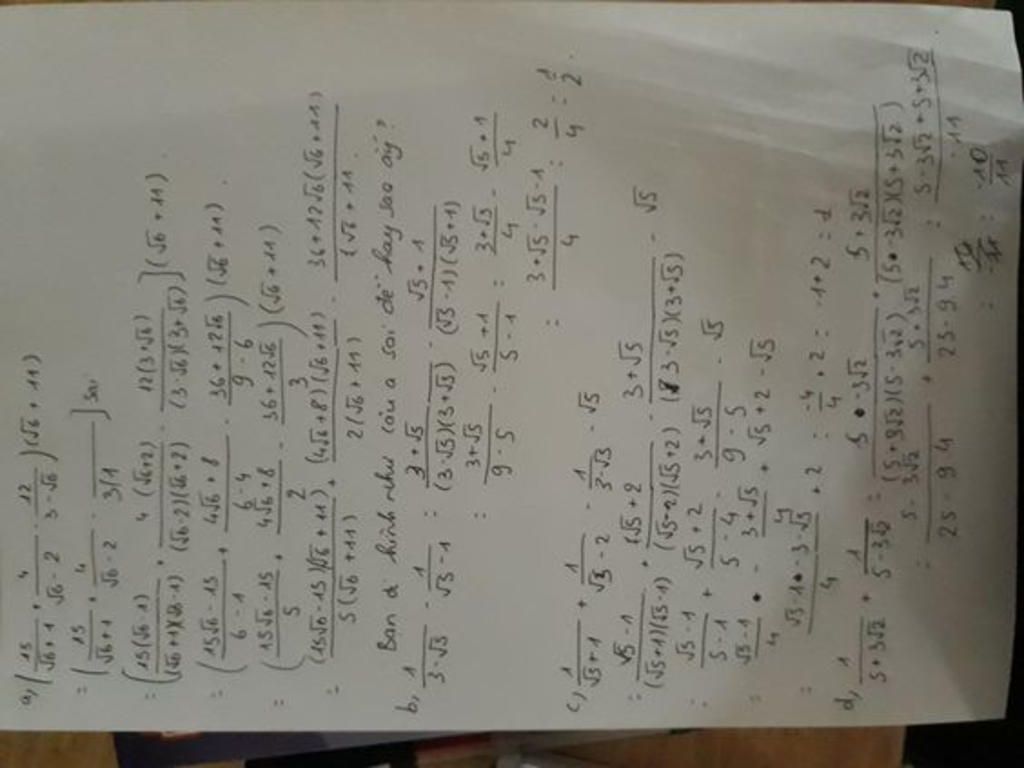 a, (15/√6+1 + 4/√6-2 - 12/3-√6)(√6+11)
= (15/√6+1 + 4/√6-2 - 3/1 ] Sai
= (15(√6-1)/(√6+1)(√6-1) + 4(√6+2)/(√6-2)(√6+2) - 12(3+√6)/(3-√6)(3+√6)](√6+11)
= (15√6-15/6-1 + 4√6+8/6-4 - 36+12√6/9-6)(√6+11)
= (15√6-15/5 + 4√6+8/2 - 36+12√6/3)(√6+11)
= (15√6-15)(√6+11)/5(√6+11) + (4√6+8)(√6+11)/2(√6+11) - 36+12√6(√6+11)/(√6+11
Ban à hình như câu a sai đề hay sao ấy?
b, 1/3-√5 - 1/√5-1 = 3+√5/(3-√5)(3+√5) - √5+1/(√5-1)(√5+1)
= 3+√5/9-5 - √5+1/5-1 = 3+√5/4 - √5+1/4
= 3+√5-√5-1/4 = 2/4 = 1/2
c, 1/√5+1 + 1/√5-2 - 1/3-√5 - √5
= √5-1/(√5+1)(√5-1) + √5+2/(√5-2)(√5+2) - 3+√5/(3-√5)(3+√5) - √5
= √5-1/5-1 + √5+2/5-4 - 3+√5/9-5 - √5
= √5-1/4 - 3+√5/4 + √5+2-√5
= √5-1-3-√5/4 + 2 = -4/4 + 2 = -1+2 = 1
d, 1/5+3√2 + 1/5-3√2 = 5-3√2/(5+3√2)(5-3√2) + 5+3√2/(5-3√2)(5+3√2)
= 5-3√2/25-9.4 + 5+3√2/25-9.4 = 5-3√2+5+3√2/-11
= -10/11